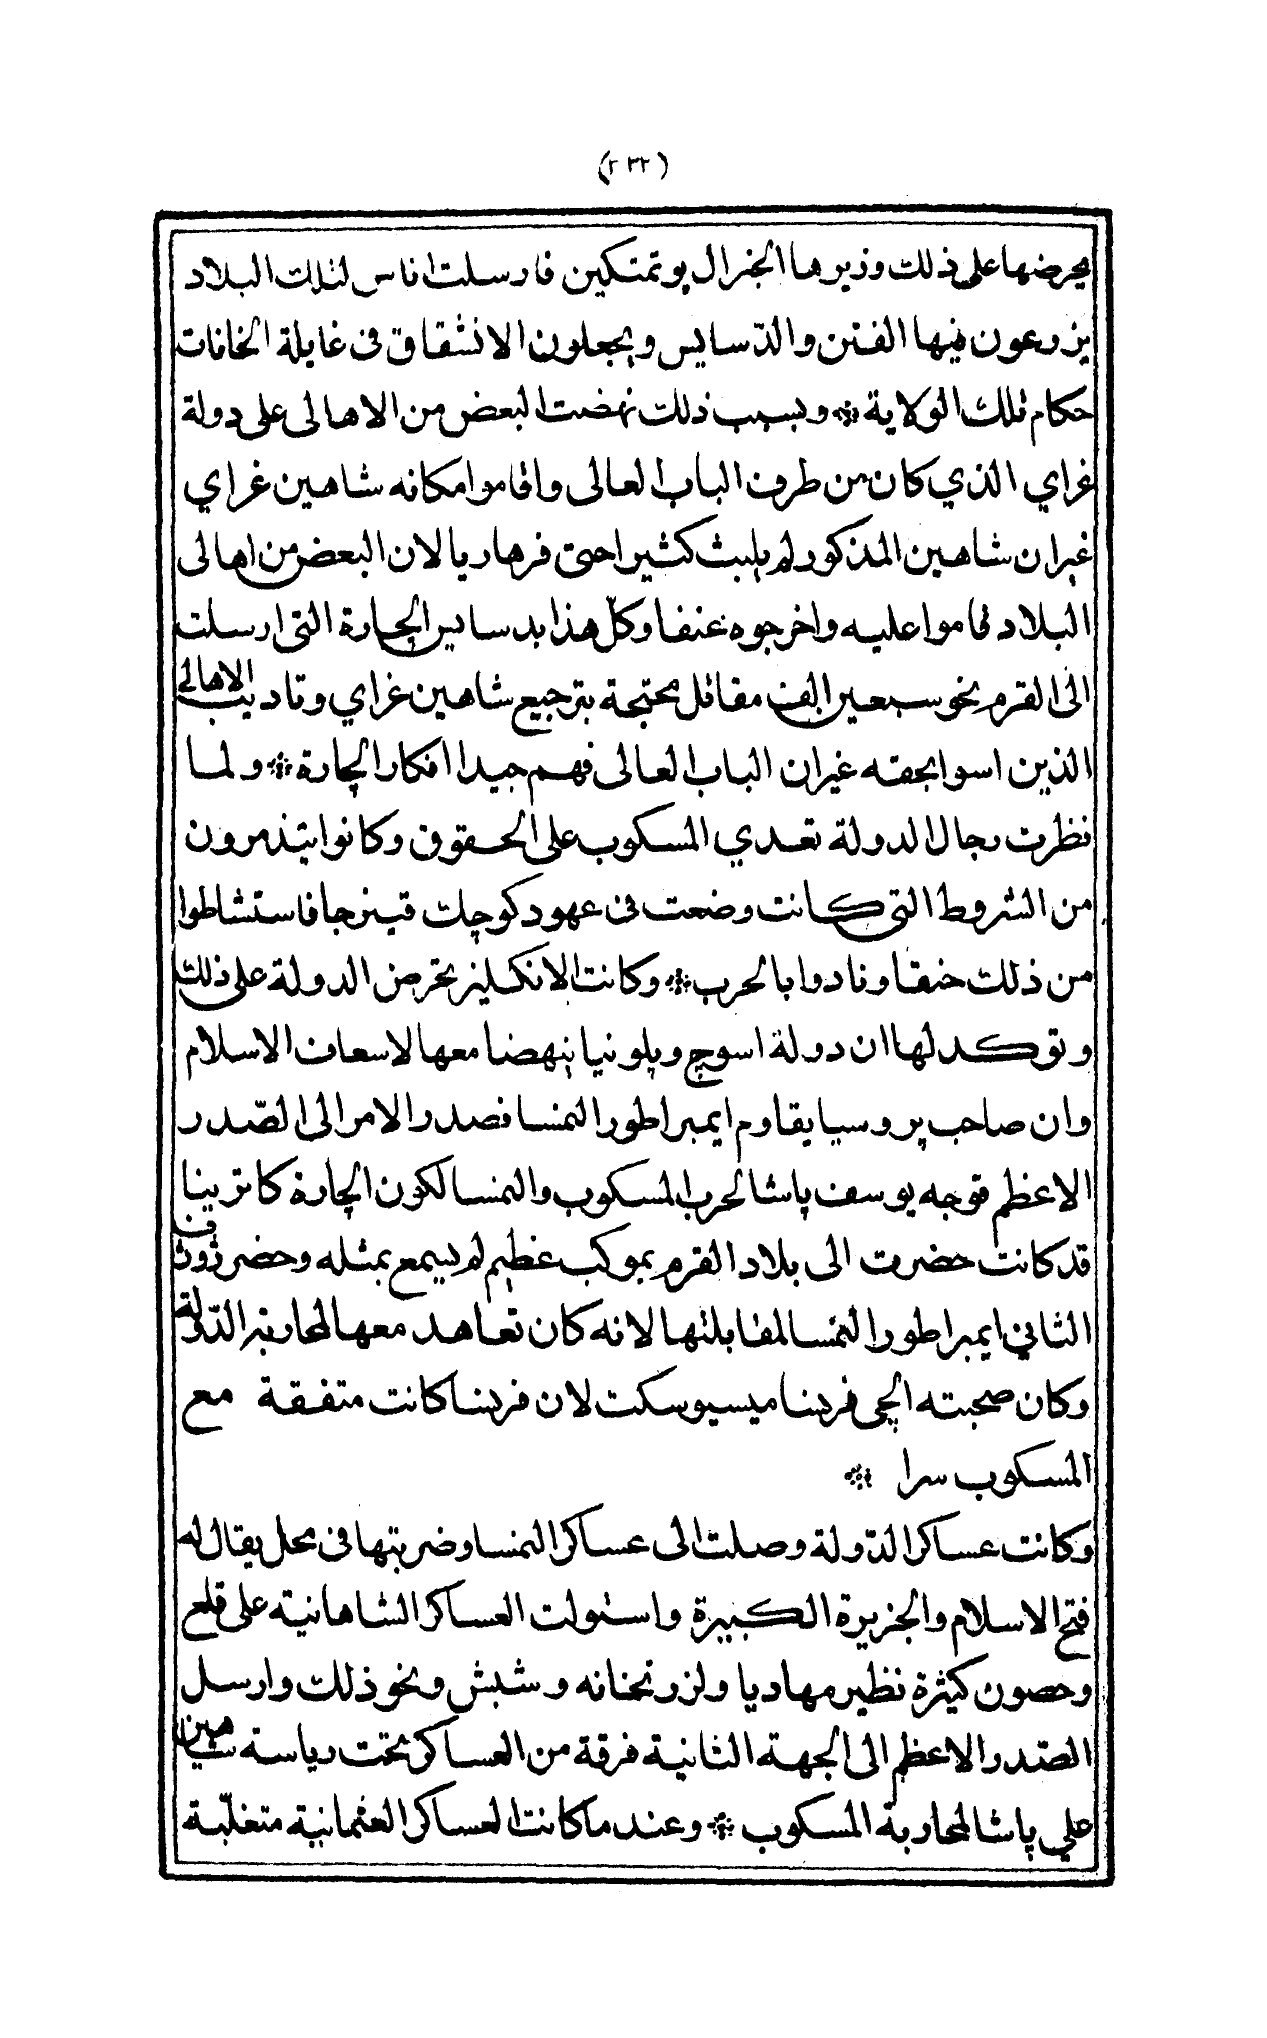 (٢٣٢)
يحرضها على ذلك وزيرها الجنرال پوتمتكين فارسلت اناس لتلك البلاد
يزرعون فيها الفتن والدّسايس ويجعلون الانشقاق فى غايلة الخانات
حكام تلك الولاية ❊ وبسبب ذلك نهضت البعض من الاهالى على دولة
غراي الذي كان من طرف الباب العالى واقاموا مكانه شاهين غراي
غيران شاهين المذكور لم يلبث كثيرا حتى فرهاربا لان البعض من اهالى
البلاد قاموا عليه واخرجوه عنفا وكلّ هذا بدسايس الچارة التى ارسلت
الى القرم نحو سبعين الف مقاتل محتجة بترجيع شاهين غراي وتاديب الاهالى
الذين اسوا بحقه غيران الباب العالى فهم جيدا افكار الچارة ❊ ولما
نظرت رجال الدولة تعدي المسكوب على الحقوق وكانوا يتذمرون
من الشروط التى كانت وضعت فى عهود كوچك قينرجا فاستشاطوا
من ذلك حنقا ونادوا بالحرب ❊ وكانت الانكليز تحرض الدولة على ذلك
وتوكد لها ان دولة اسوج وپلونيا ينهضا معها لاسعاف الاسلام
وان صاحب پروسيا يقاوم ايمبراطور النمسا فصدر الامر الى الصّدر
الاعظم قوجه يوسف پاشا لحرب المسكوب والنمسا لكون الچارة كاترينا
قد كانت حضرت الى بلاد القرم بموكب عظيم لم يسمع بمثله وحضر ژوزف
الثاني ايمبراطور النمسا لمقابلتها لانه كان تعاهد معها لمحاربة الدّولة
وكان صحبته الچى فرنسا ميسيو سكت لان فرنسا كانت متفقة مع
المسكوب سرا ❊
وكانت عساكر الدّولة وصلت الى عساكر النمسا وضربتها فى محل يقال له
فتح الاسلام والجزيرة الكبيرة واستولت العساكر الشاهانية على قلع
وحصون كثيرة نظير مهاديا ولزرنخانه وشبش ونحو ذلك وارسل
الصّدر الاعظم الى الجهة الثانية فرقة من العساكر تحت رياسة شاهين
علي پاشا لمحاربة المسكوب ❊ وعند ما كانت العساكر العثمانية متغلّبة